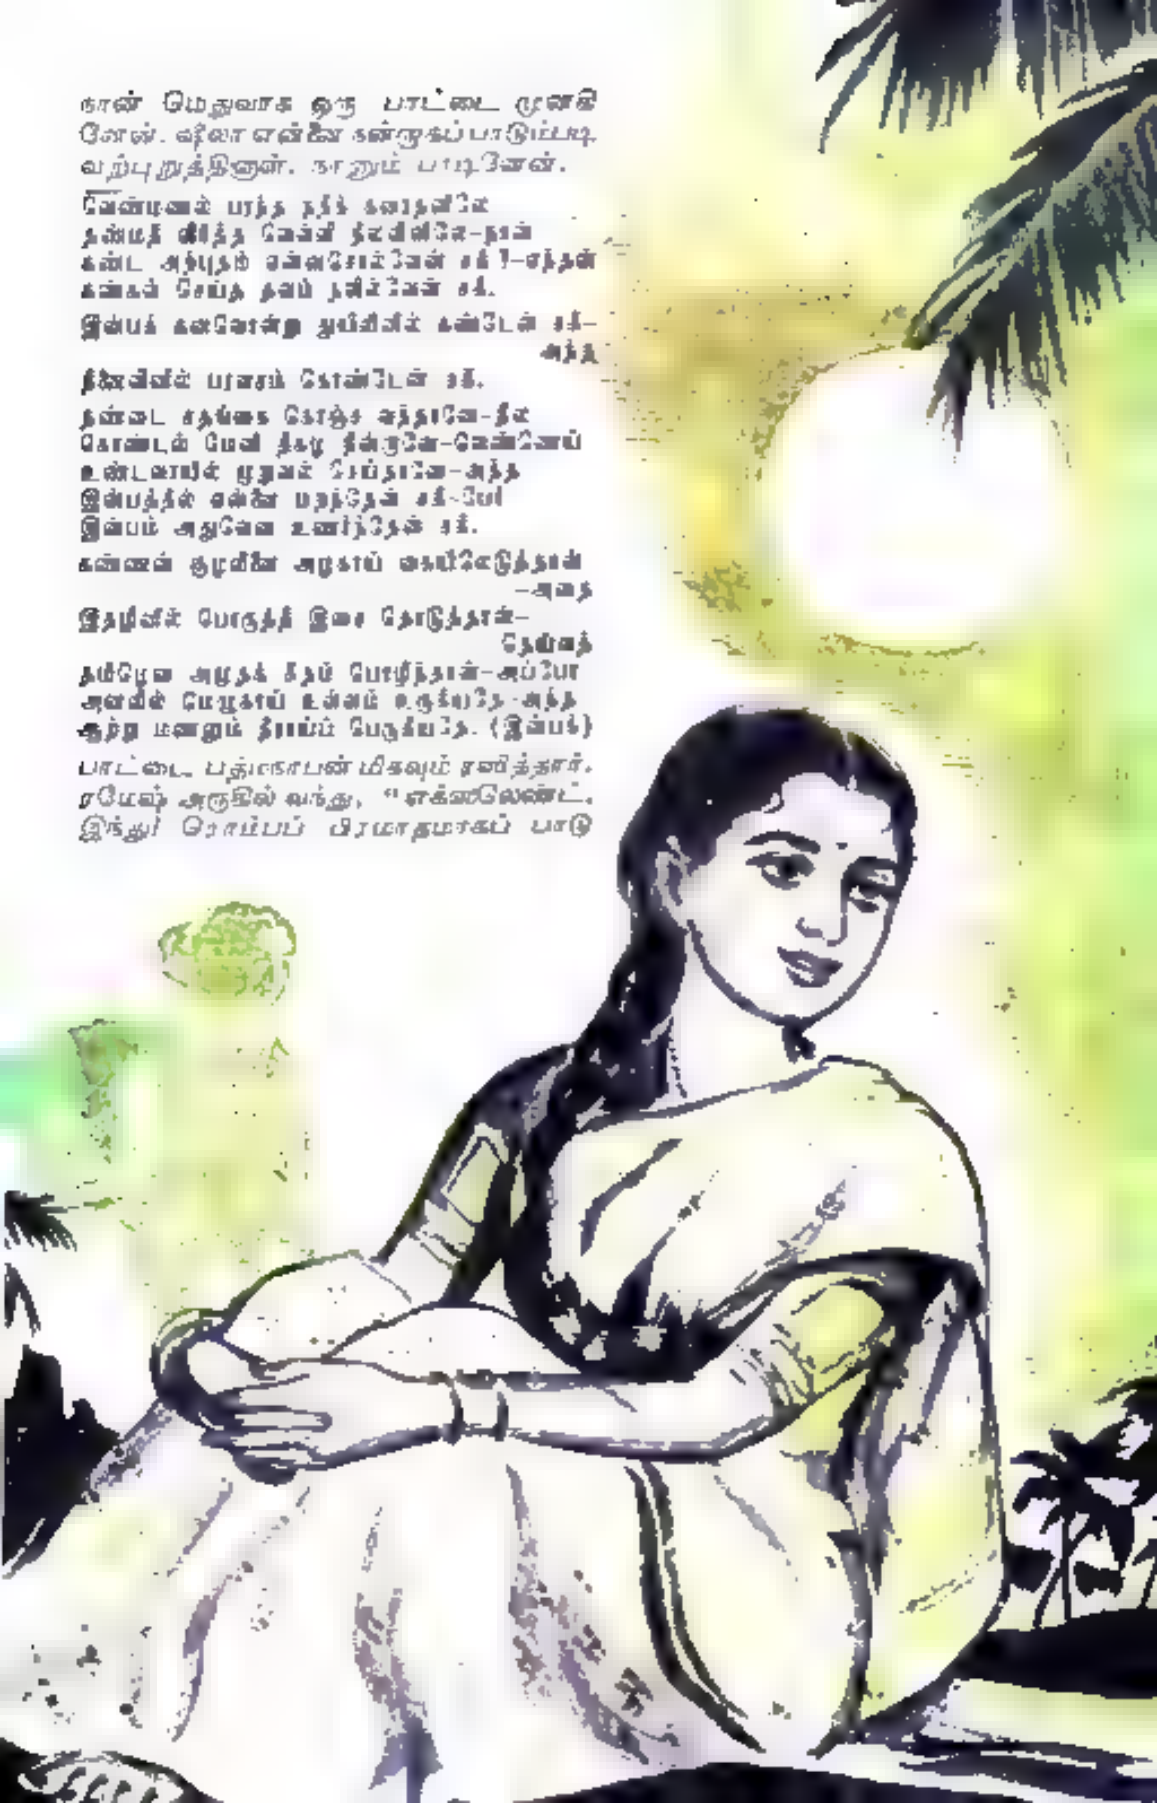 நான் மெதுவாக ஒரு பாட்டை முனகி
னேன். ஷீலா என்னை நன்றாகப் பாடும்படி
வற்புறுத்தினாள். நானும் பாடினேன்.
வெண்மணல் பரந்த நதிக் கரைதனிலே
தண்மதி விரித்த வெள்ளி நிலவினிலே-நான்
கண்ட அற்புதம் என்னசொல்வேன் சகி !-எந்தன்
கண்கள் செய்த தவம்
இன்பக் கனவொன்று துயிலினில் கண்டேன் சகி-
அந்த
நினைவினில் பரவசம் கொண்டேன் சகி.
தண்டை சதங்கை கொஞ்ச வந்தானே-நீல
கொண்டல் மேனி திகழ நின்றானே-வெண்ணெய்
உண்டவாயில் முறுவல் செய்தானே-அந்த
இன்பத்தில் என்னை மறந்தேன் சகி-பேர
இன்பம் அதுவென உணர்ந்தேன் சகி.
கண்ணன் குழலினை அழகாய் கையிலெடுத்தான்
-அதை
இதழினில் பொருத்தி இசை தொடுத்தான்-
தெள்ளத்
அமுதக் கீதம் பொழிந்தான்-அப்போ
அனலில் மெழுகாய் உள்ளம் உருகியதே-அந்த
ஆற்று மணலும் நீராய்ப் பெருகியதே. (இன்பக்)
பாட்டை பத்மநாபன் மிகவும் ரஸித்தார்.
ரமேஷ் அருகில் வந்து, "எக்ஸலெண்ட்.
இந்து! ரொம்பப் பிரமாதமாகப் பாடு